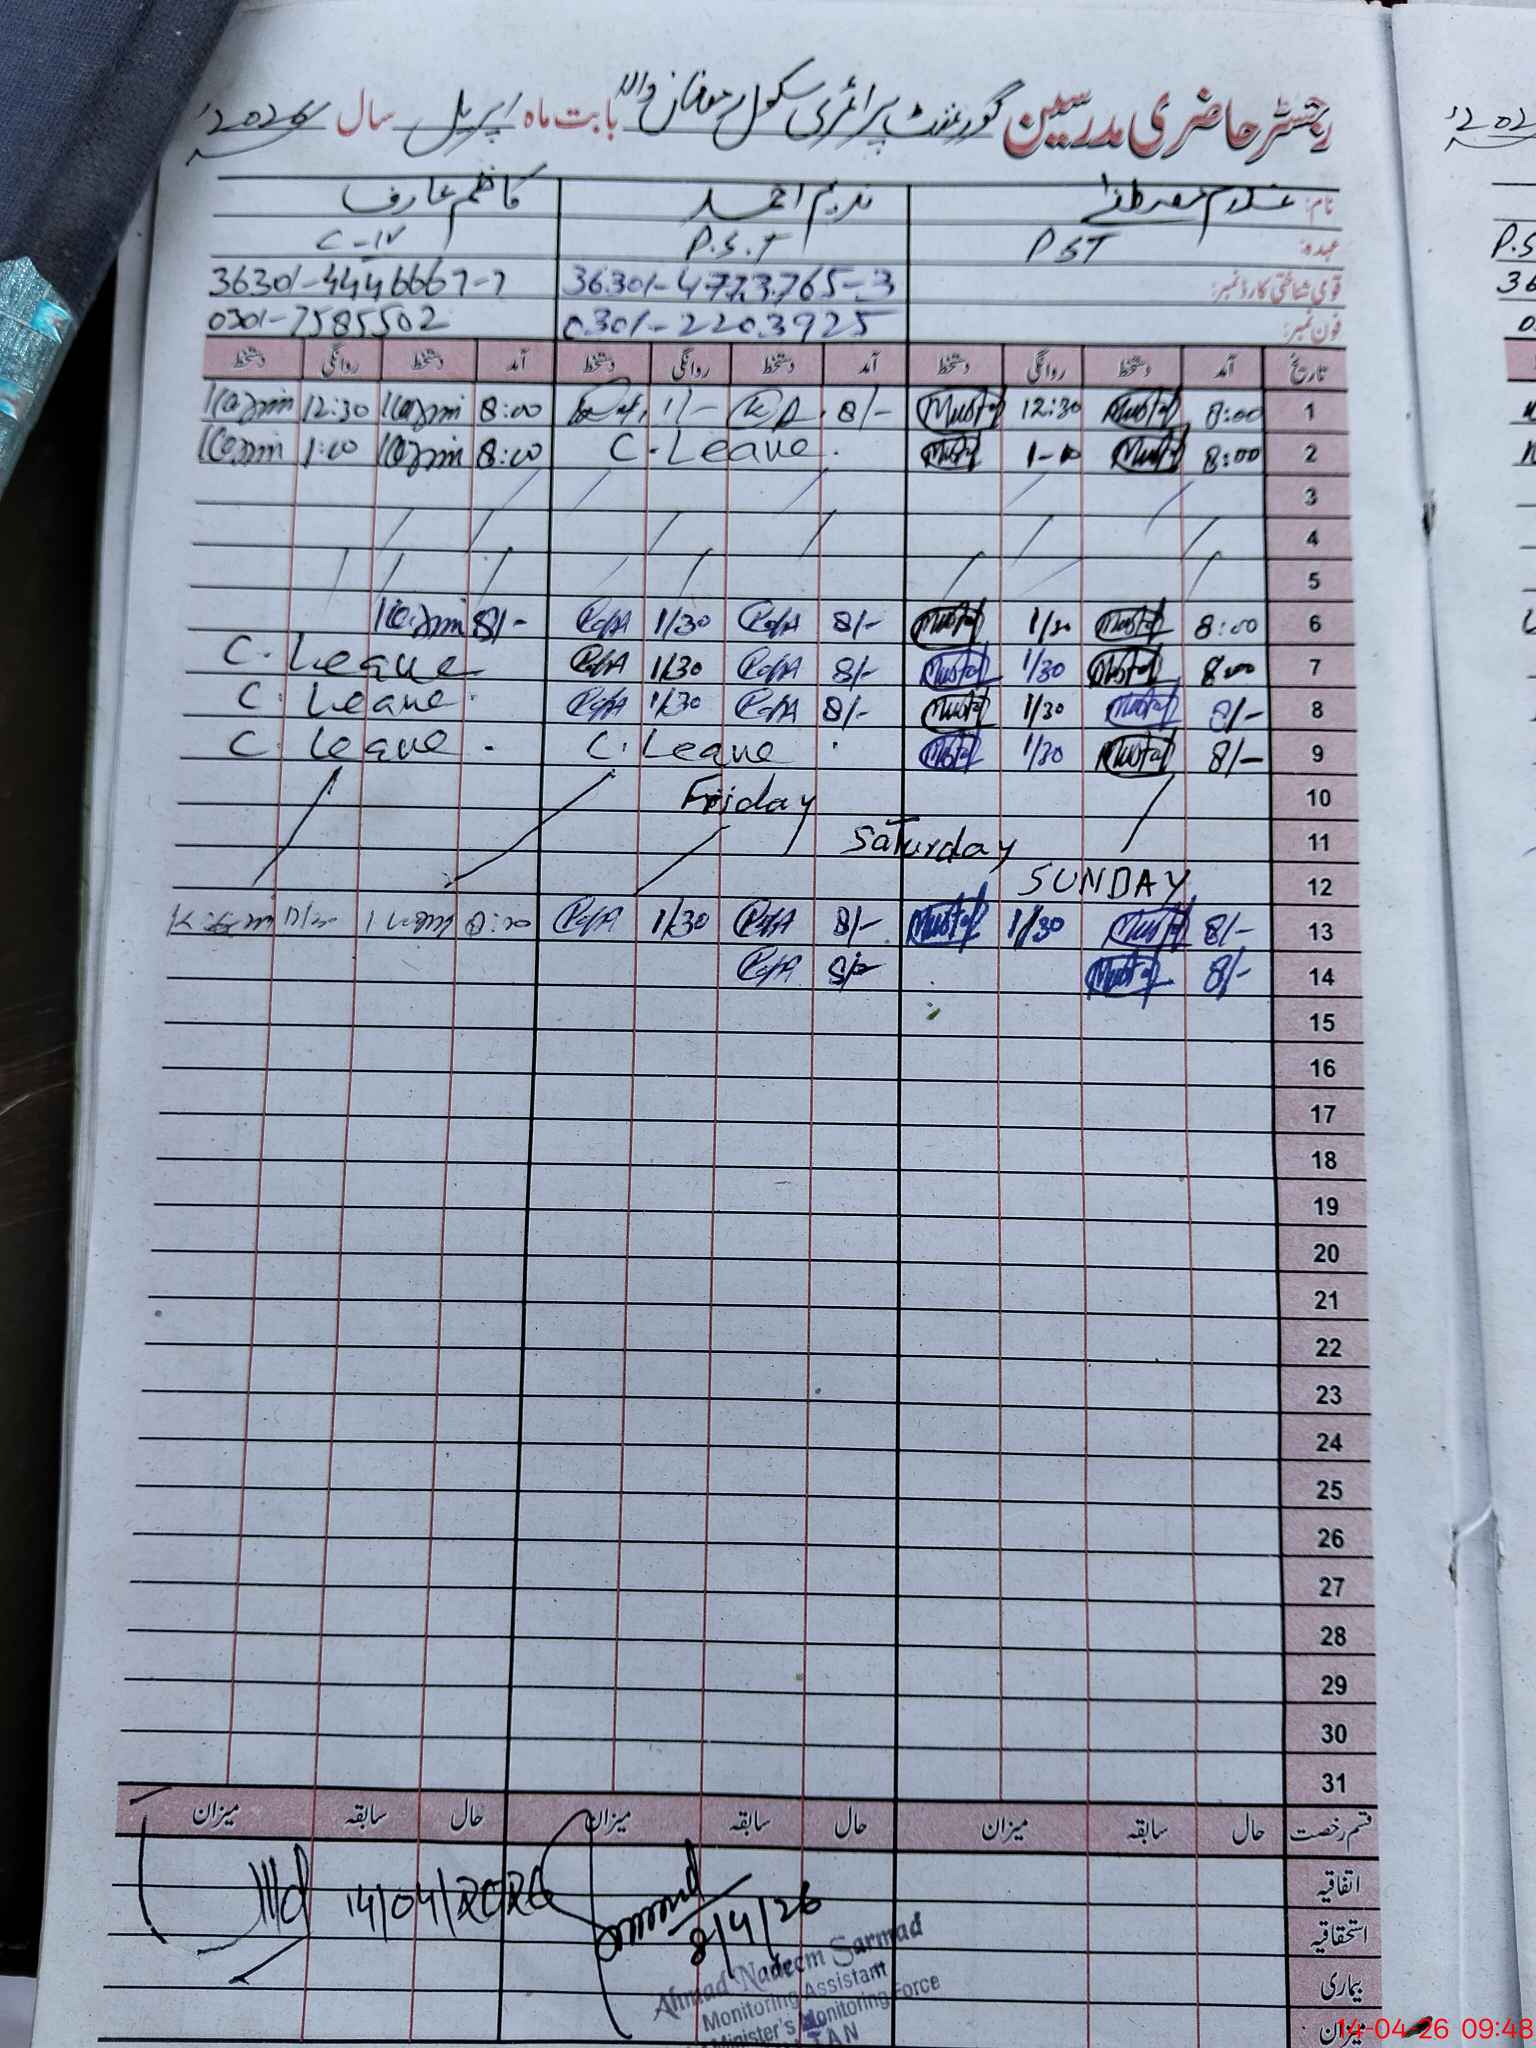 رجسٹر حاضری مدرسین گورنمنٹ پرائمری سکول رمضان والا بابت ماہ اپریل سال 2026ء
نام: غلام مصطفےٰ ندیم احمد کاظم عارف
عہدہ: PST P.S.T C-IV
قومی شناختی کارڈ نمبر: 36301-4773765-3 36301-4446667-7
فون نمبر: 0301-2203925 0301-7585502
تاریخ آمد دستخط روانگی دستخط آمد دستخط روانگی دستخط آمد دستخط روانگی دستخط
1 8:00 Mustaf 12:30 Mustaf 8/- 1/- 8:00 Kazim 12:30 Kazim
2 8:00 Mustaf 1-10 Mustaf C. Leave. 8:00 Kazim 1:00 Kazim
3
4
5
6 8:00 Mustaf 1/30 Mustaf 8/- 1/30 8/- Kazim
7 8:00 Mustaf 1/30 Mustaf 8/- 1/30 C. Leave
8 8/- Mustaf 1/30 Mustaf 8/- 1/30 C. Leave.
9 8/- Mustaf 1/30 Mustaf C. Leave. C. Leave.
10 Friday
11 Saturday
12 SUNDAY
13 8/- Mustaf 1/30 Mustaf 8/- 1/30
14 8/- Mustaf
15
16
17
18
19
20
21
22
23
24
25
26
27
28
29
30
31
قسم رخصت حال سابقہ میزان حال سابقہ میزان حال سابقہ میزان
اتفاقیہ
14/04/2026
استحقاقیہ
8/4/26
Ahmad Nadeem Sarmad
Monitoring Assistant
Minister's Monitoring Force
بیماری
میزان
14-04-26 09:48